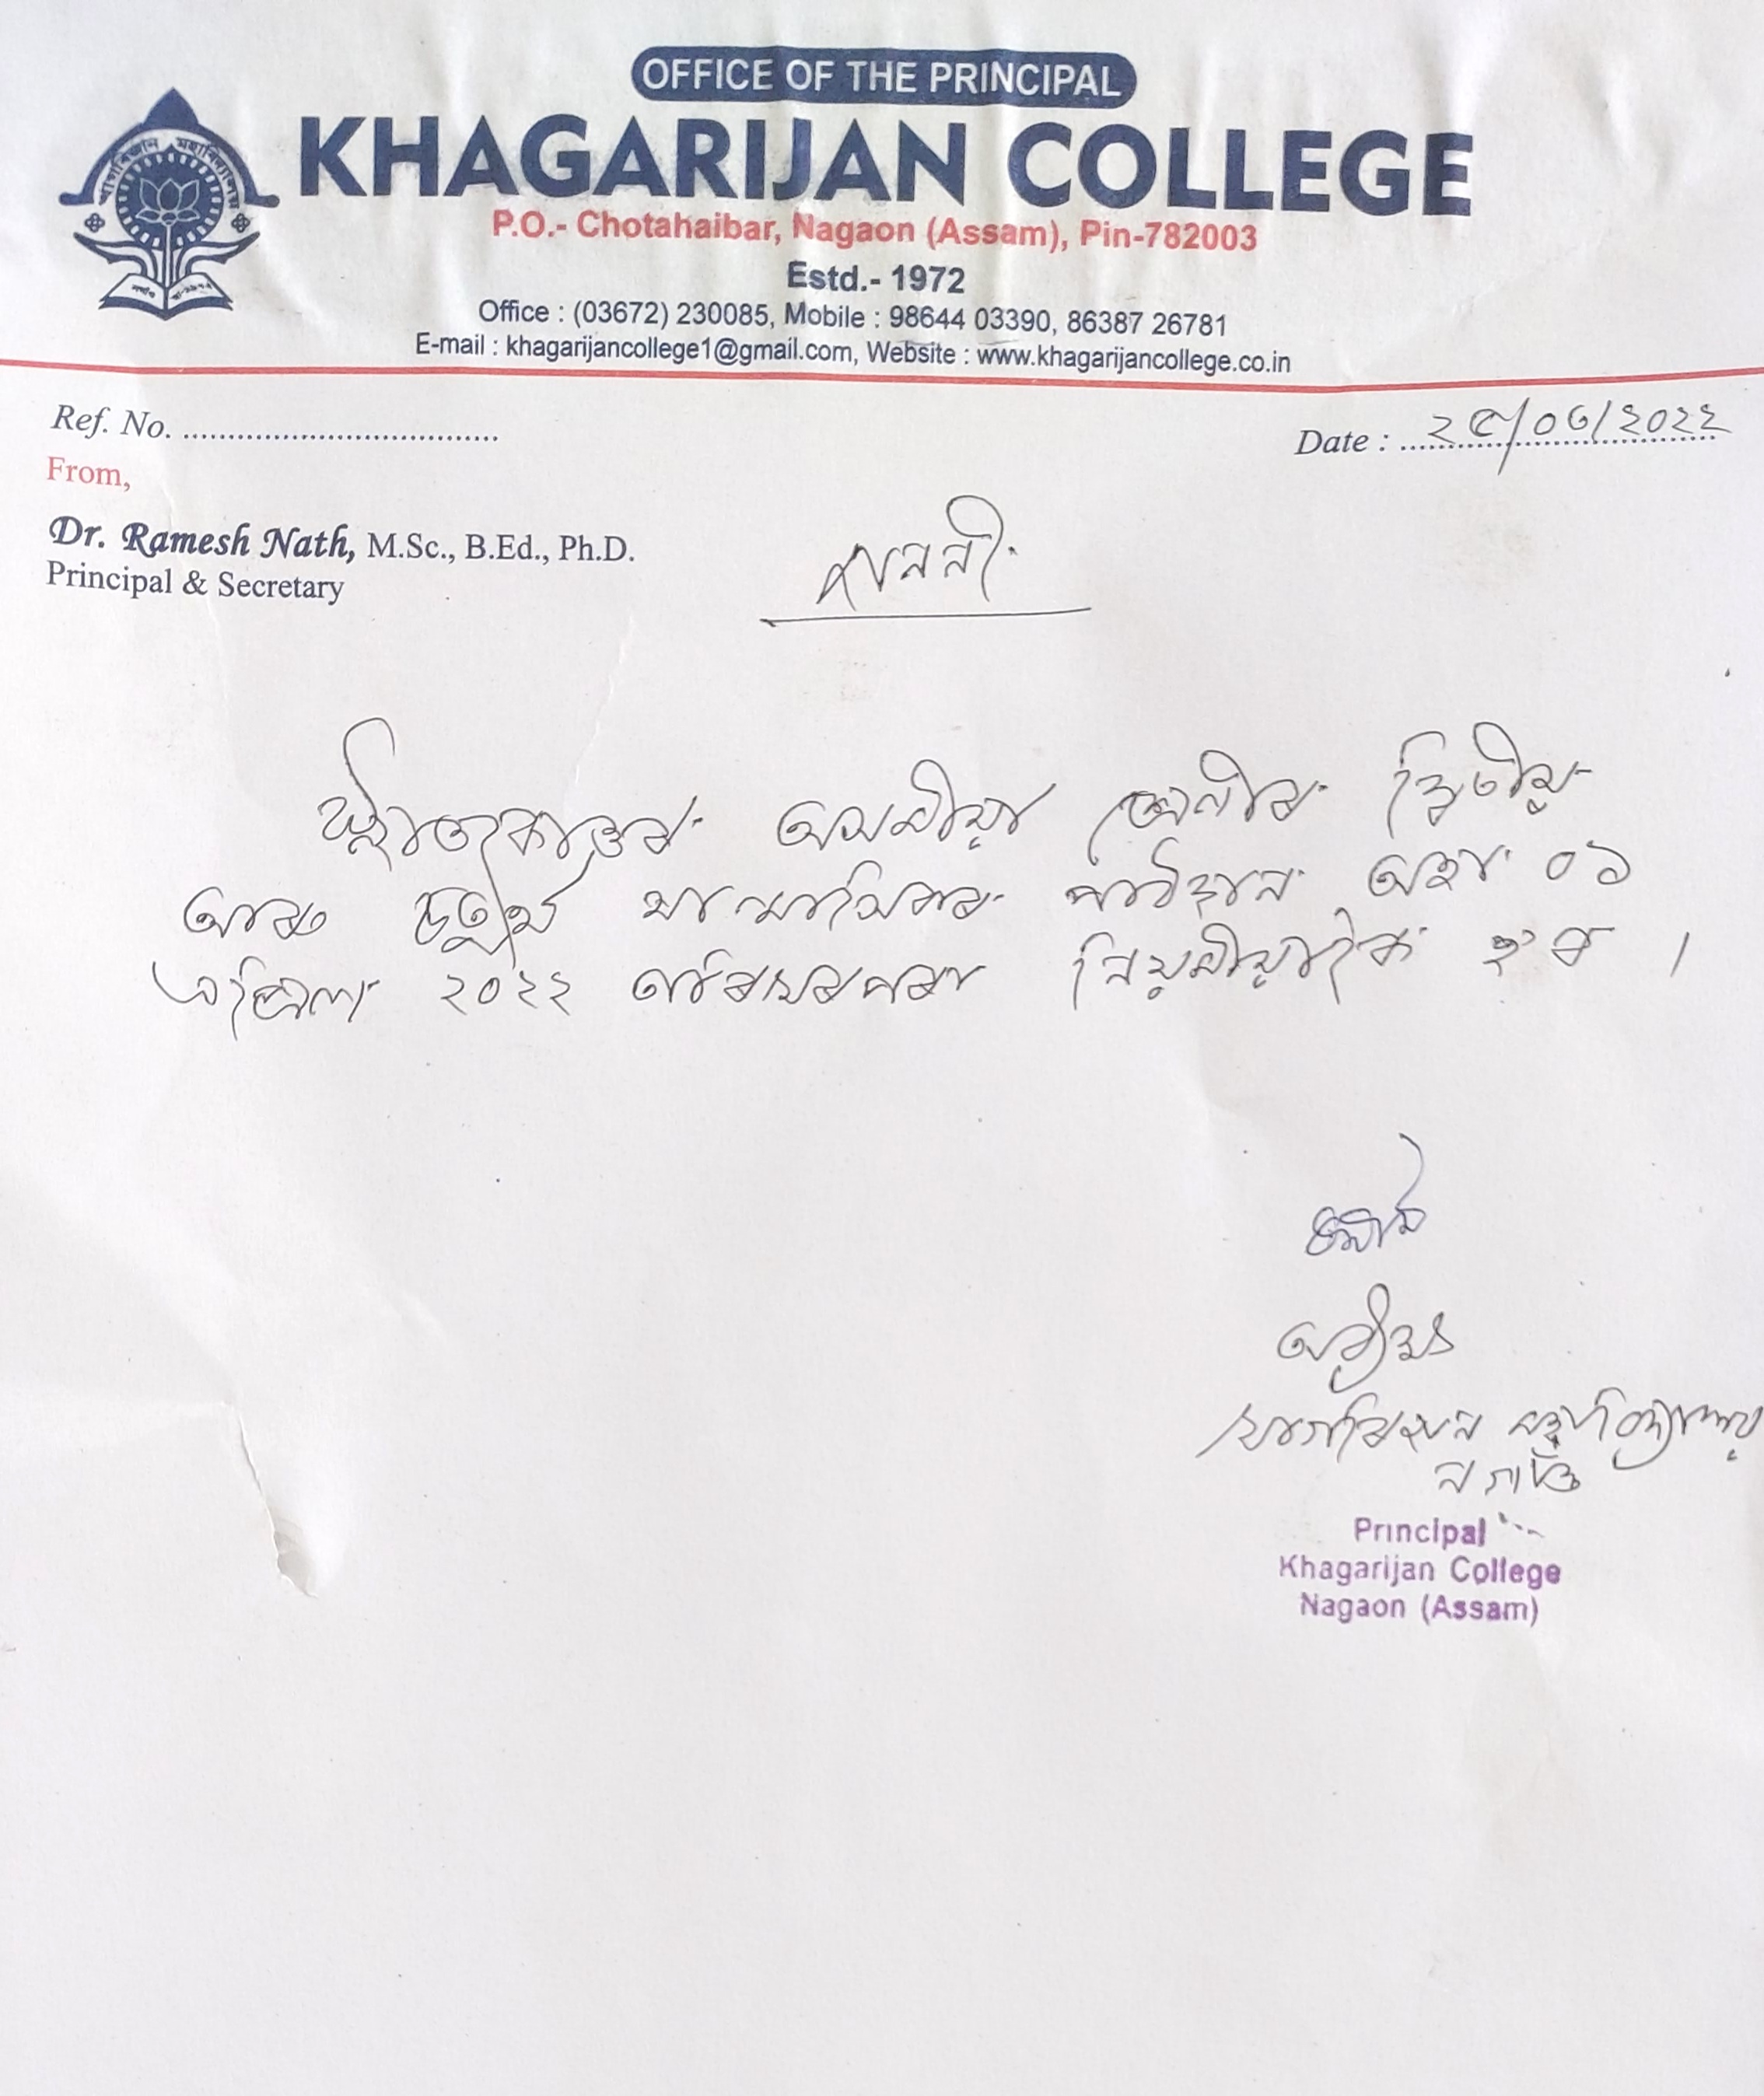 OFFICE OF THE PRINCIPAL
খাগৰিজান মহাবিদ্যালয়
KHAGARIJAN COLLEGE
P.O.- Chotahaibar, Nagaon (Assam), Pin-782003
Estd.- 1972
Office : (03672) 230085, Mobile : 98644 03390, 86387 26781
E-mail : khagarijancollege1@gmail.com, Website : www.khagarijancollege.co.in
Ref. No. ....................................
Date : ২৫/০৩/২০২২
From,
Dr. Ramesh Nath, M.Sc., B.Ed., Ph.D.
Principal & Secretary
জাননী
স্নাতকোত্তৰ অসমীয়া শ্ৰেণীৰ দ্বিতীয়
আৰু চতুৰ্থ ষান্মাসিকৰ পাঠদান অহা ০১
এপ্ৰিল ২০২২ তাৰিখৰ পৰা নিয়মীয়াকৈ হ'ব ।
অধ্যক্ষ
খাগৰিজান মহাবিদ্যালয়
নগাওঁ
Principal
Khagarijan College
Nagaon (Assam)